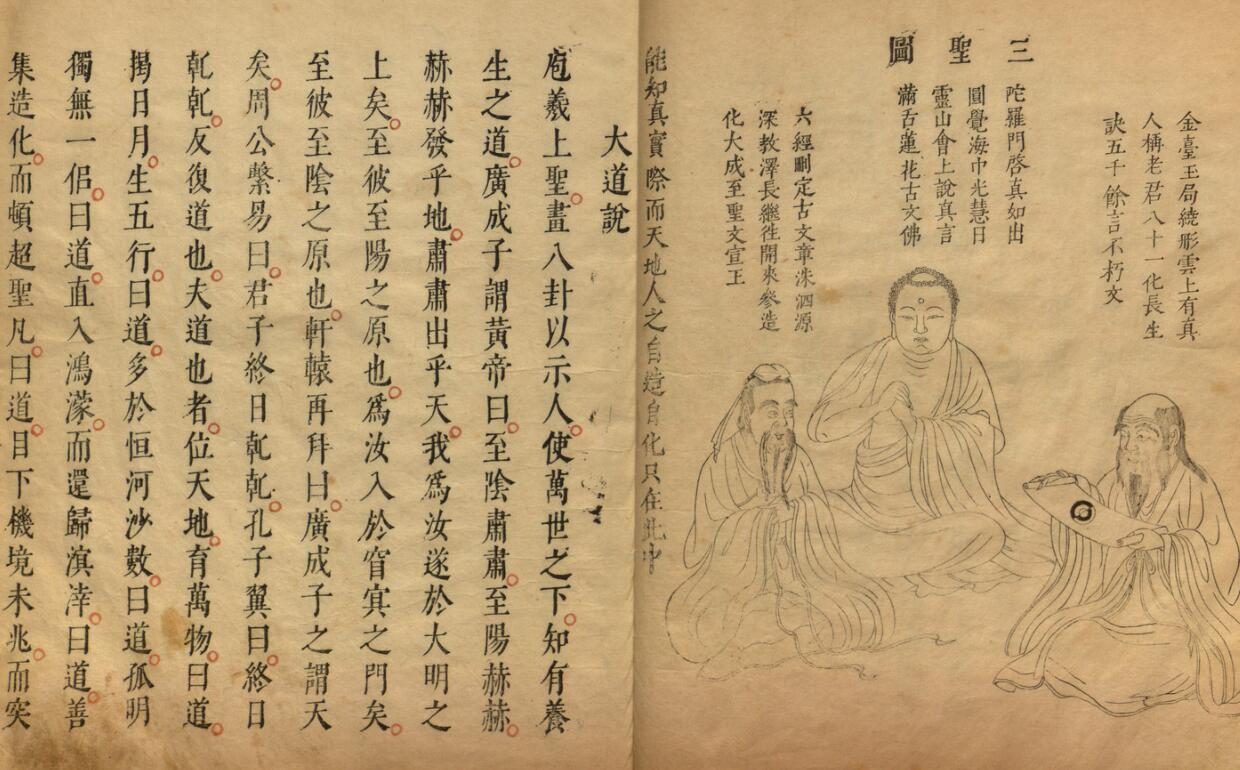 三聖圖
金臺玉局繞彤雲上有真
人稱老君八十一化長生
訣五千餘言不朽文
陀羅門啓真如出
圓覺海中光慧日
靈山會上說真言
滿舌蓮花古文佛
六經刪定古文章洙泗源
深教澤長繼徃開來參造
化大成至聖文宣王
能知真實際而天地人之自造自化只在此中
大道說
庖羲上聖畫八卦以示人使萬世之下知有養
生之道廣成子謂黃帝曰至陰肅肅至陽赫赫
赫赫發乎地肅肅出乎天我爲汝遂於大明之
上矣至彼至陽之原也爲汝入於窅㝠之門矣
至彼至陰之原也軒轅再拜曰廣成子之謂天
矣周公繫易曰君子終日乹乹孔子翼曰終日
乹乹反復道也夫道也者位天地育萬物曰道
揭日月生五行曰道多於恒河沙數曰道孤明
獨無一侶曰道直入鴻濛而還歸溟涬曰道善
集造化而頓超聖凡曰道目下機境未兆而突